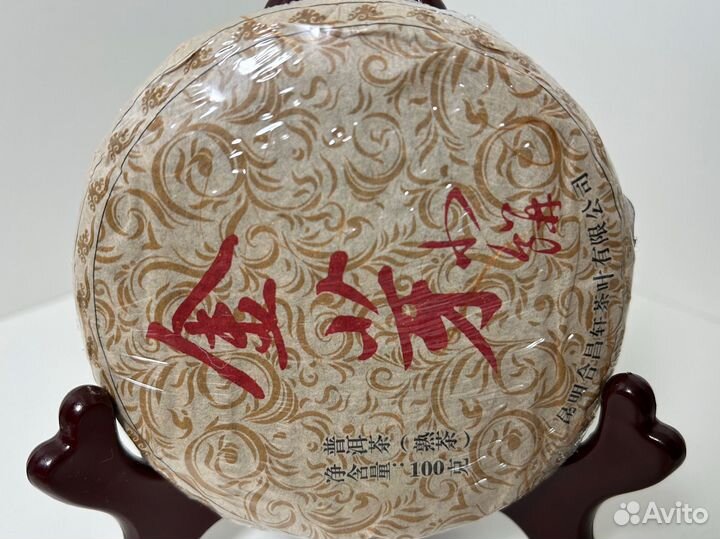 金芽小饼
普洱茶（熟茶）
净含量：100克
昆明合昌轩茶叶有限公司
Avito